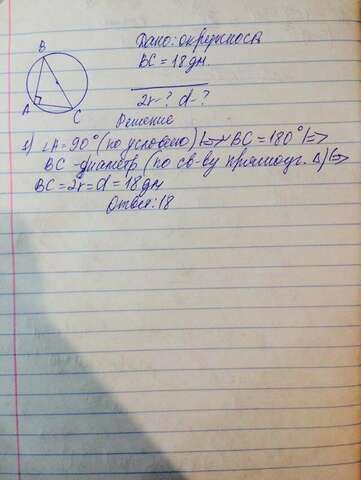 B
A
C
Дано: окружность
BC = 18 дм.
2r-? d-?
Решение
1) ∠A = 90° (по условию) |=> ◡BC = 180° |=>
BC - диаметр (по св-ву прямоуг. Δ) |=>
BC = 2r = d = 18 дм
Ответ: 18